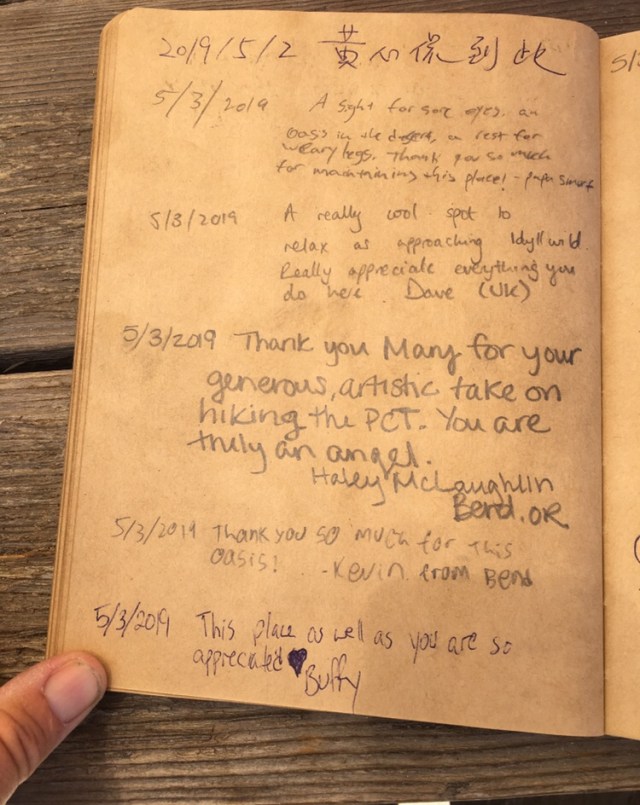 2019/5/2 黄心保到此
5/3/2019 A sight for sore eyes. an
oasis in the desert, a rest for
weary legs. Thank you so much
for maintaining this place! - papa Smurf
5/3/2019 A really cool spot to
relax as approaching Idyllwild.
Really appreciate everything you
do here. Dave (UK)
5/3/2019 Thank you Mary for your
generous, artistic take on
hiking the PCT. You are
truly an angel.
Haley McLaughlin
Bend, OR
5/3/2019 Thank you SO much for this
oasis! - Kevin from Bend
5/3/2019 This place as well as you are so
appreciated ♥
Buffy